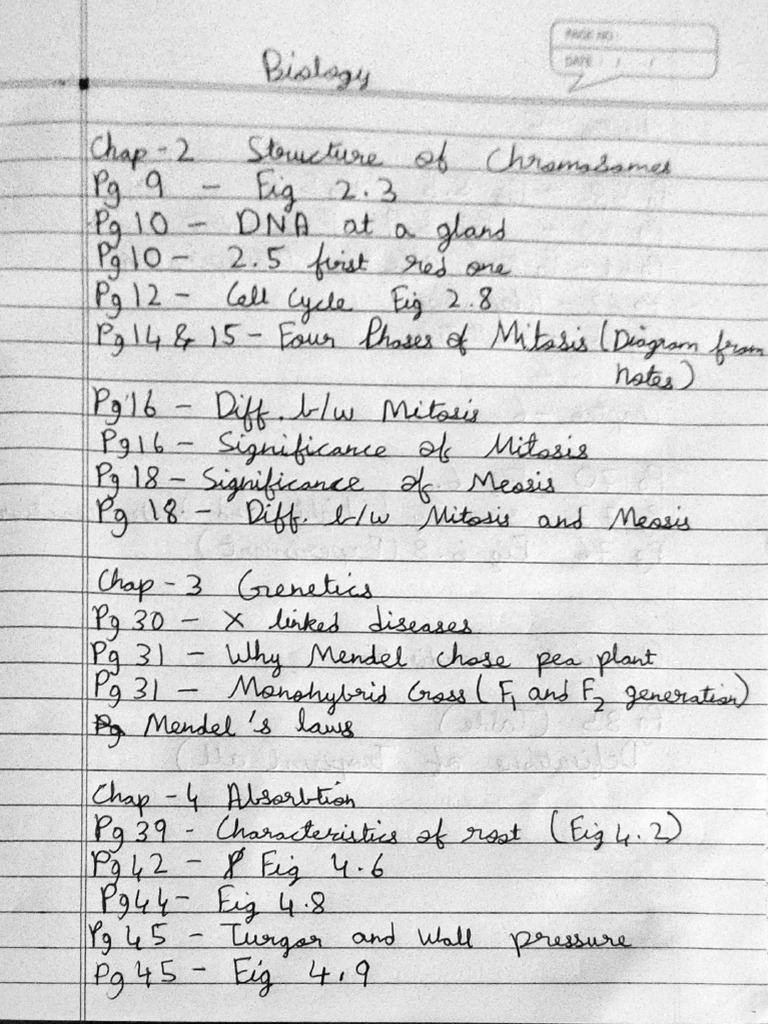 PAGE NO:
DATE: / /
Biology
Chap-2 Structure of Chromosomes
Pg 9 - Fig 2.3
Pg 10 - DNA at a gland
Pg 10 - 2.5 first red one
Pg 12 - Cell Cycle Fig 2.8
Pg 14 & 15 - Four Phases of Mitosis (Diagram from
notes)
Pg 16 - Diff. b/w Mitosis
Pg 16 - Significance of Mitosis
Pg 18 - Significance of Meosis
Pg 18 - Diff. b/w Mitosis and Meosis
Chap - 3 Genetics
Pg 30 - X linked diseases
Pg 31 - Why Mendel chose pea plant
Pg 31 - Monohybrid Cross (F1 and F2 generation)
Pg Mendel's laws
Chap - 4 Absorbtion
Pg 39 - Characteristics of root (Fig 4.2)
Pg 42 - Fig 4.6
Pg 44 - Fig 4.8
Pg 45 - Turgor and Wall pressure
Pg 45 - Fig 4.9